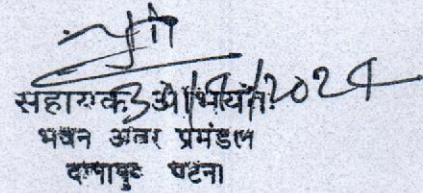 सहायक अभियंता
30/9/2024
भवन अवर प्रमंडल
दानापुर पटना